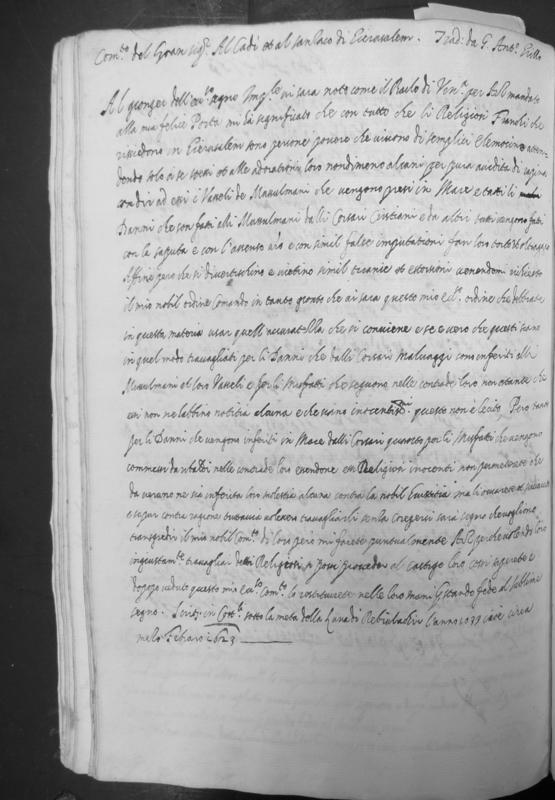 Com.to del Gran sig.r Al Cadi et al sanzaco di Gierusalem. Trad: da G. Ant.o Grillo
Al gionger dell'ecc.so segno Imp.le vi sara noto come il Bailo di Ven.a per suo mandato
alla mia felice Porta mi hà significato che con tutto che li Religiosi Franchi che
rissiedono in Gierusalem sono persone povere che vivono di semplici elemosine atten-
dendo solo a se stessi et alle adorationi loro nondimeno alcuni per pura avidità di rapina
con dir ad essi i Vasselli de Mussulmani che vengono presi in Mare e tutti li
Danni che son fatti alli Mussulmani dalli Corsari Cristiani e da altri tutti vengono fatti
con la saputa e con l'assenso v'ro e con simil false imputationi fan loro torto et oltraggio
Affine però che si divertischino e vietino simil tiranie et estorsioni venendomi richiesto
il mio nobil ordine Comando in tanto gionto che vi sara questo mio ecc.so ordine che debbiate
in questa materia usar quell'accuratezza che si conviene e se è vero che questi siano
in quel modo travagliati per li Danni che dalli Corsari malvaggi sono inferiti alli
Mussulmani et loro Vasselli e per li misfatti che seguono nelle contrade loro non ostante che
essi non ne habbino notitia alcuna e che siano innocentissimi questo non è lecito. Però tanto
per li Danni che vengono inferiti in Mare dalli Corsari quanto per li Misfatti che vengono
commessi da altri nelle contrade loro essendone essi Religiosi inocenti non permetterete che
da veruno ne sia inferita loro molestia alcuna contra la nobil Giustitia ma li
e se pur contra ragione tuttavia volessero travagliarli senza coregersi sarà segno che vogliono
transgredir il mio nobil Com.to di loro però mi farete puntualmente perche volendo loro
ingiustam.te travagliar detti Religiosi si possi proceder al castigo loro così saprete e
doppo veduto questo mio ecc.so Com.to lo restituirete nelle loro mani Prestando fede al sublime
segno. Scritto in Cost.li sotto la metà della Luna di Rebiulachir l'anno 1033 cioè circa
mezo Febraro 1623